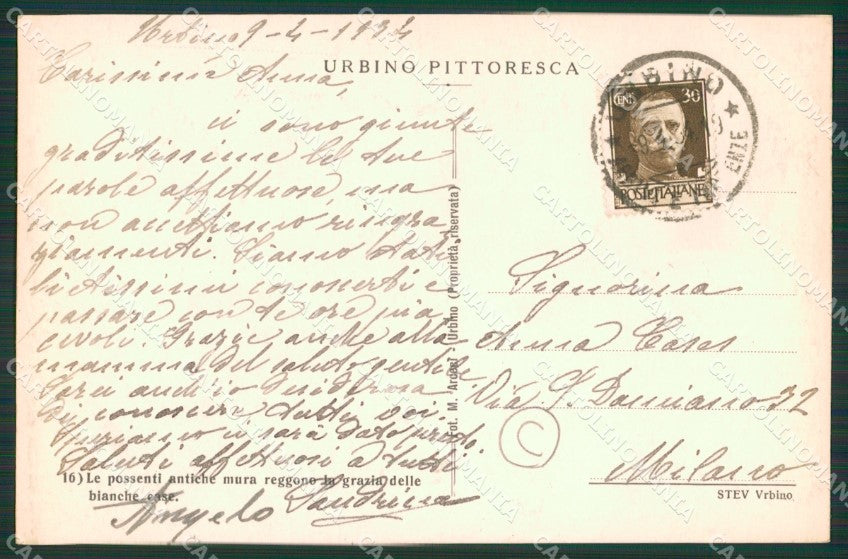 Urbino 9-4-1934
URBINO PITTORESCA
Carissima Anna,
ci sono giunte
graditissime le tue
parole affettuose, ma
non accettiamo ringra
ziamenti. Siamo stati
lietissimi conoscerti e
passare con te ore pia
cevoli. Grazie anche alla
mamma del saluto gentile
Sarei anch'io desiderosa
di conoscere tutti voi.
Speriamo ci sarà dato presto.
Saluti affettuosi a tutti
Sandrina
Angelo
16) Le possenti antiche mura reggono la grazia delle
bianche case.
(Fot. M. Arceci Urbino (Proprietà riservata)
CENT. 30
POSTE ITALIANE
URBINO
Signorina
Anna Cases
Via S. Damiano 32
Milano
C
STEV Vrbino
CARTOLINOMANIA